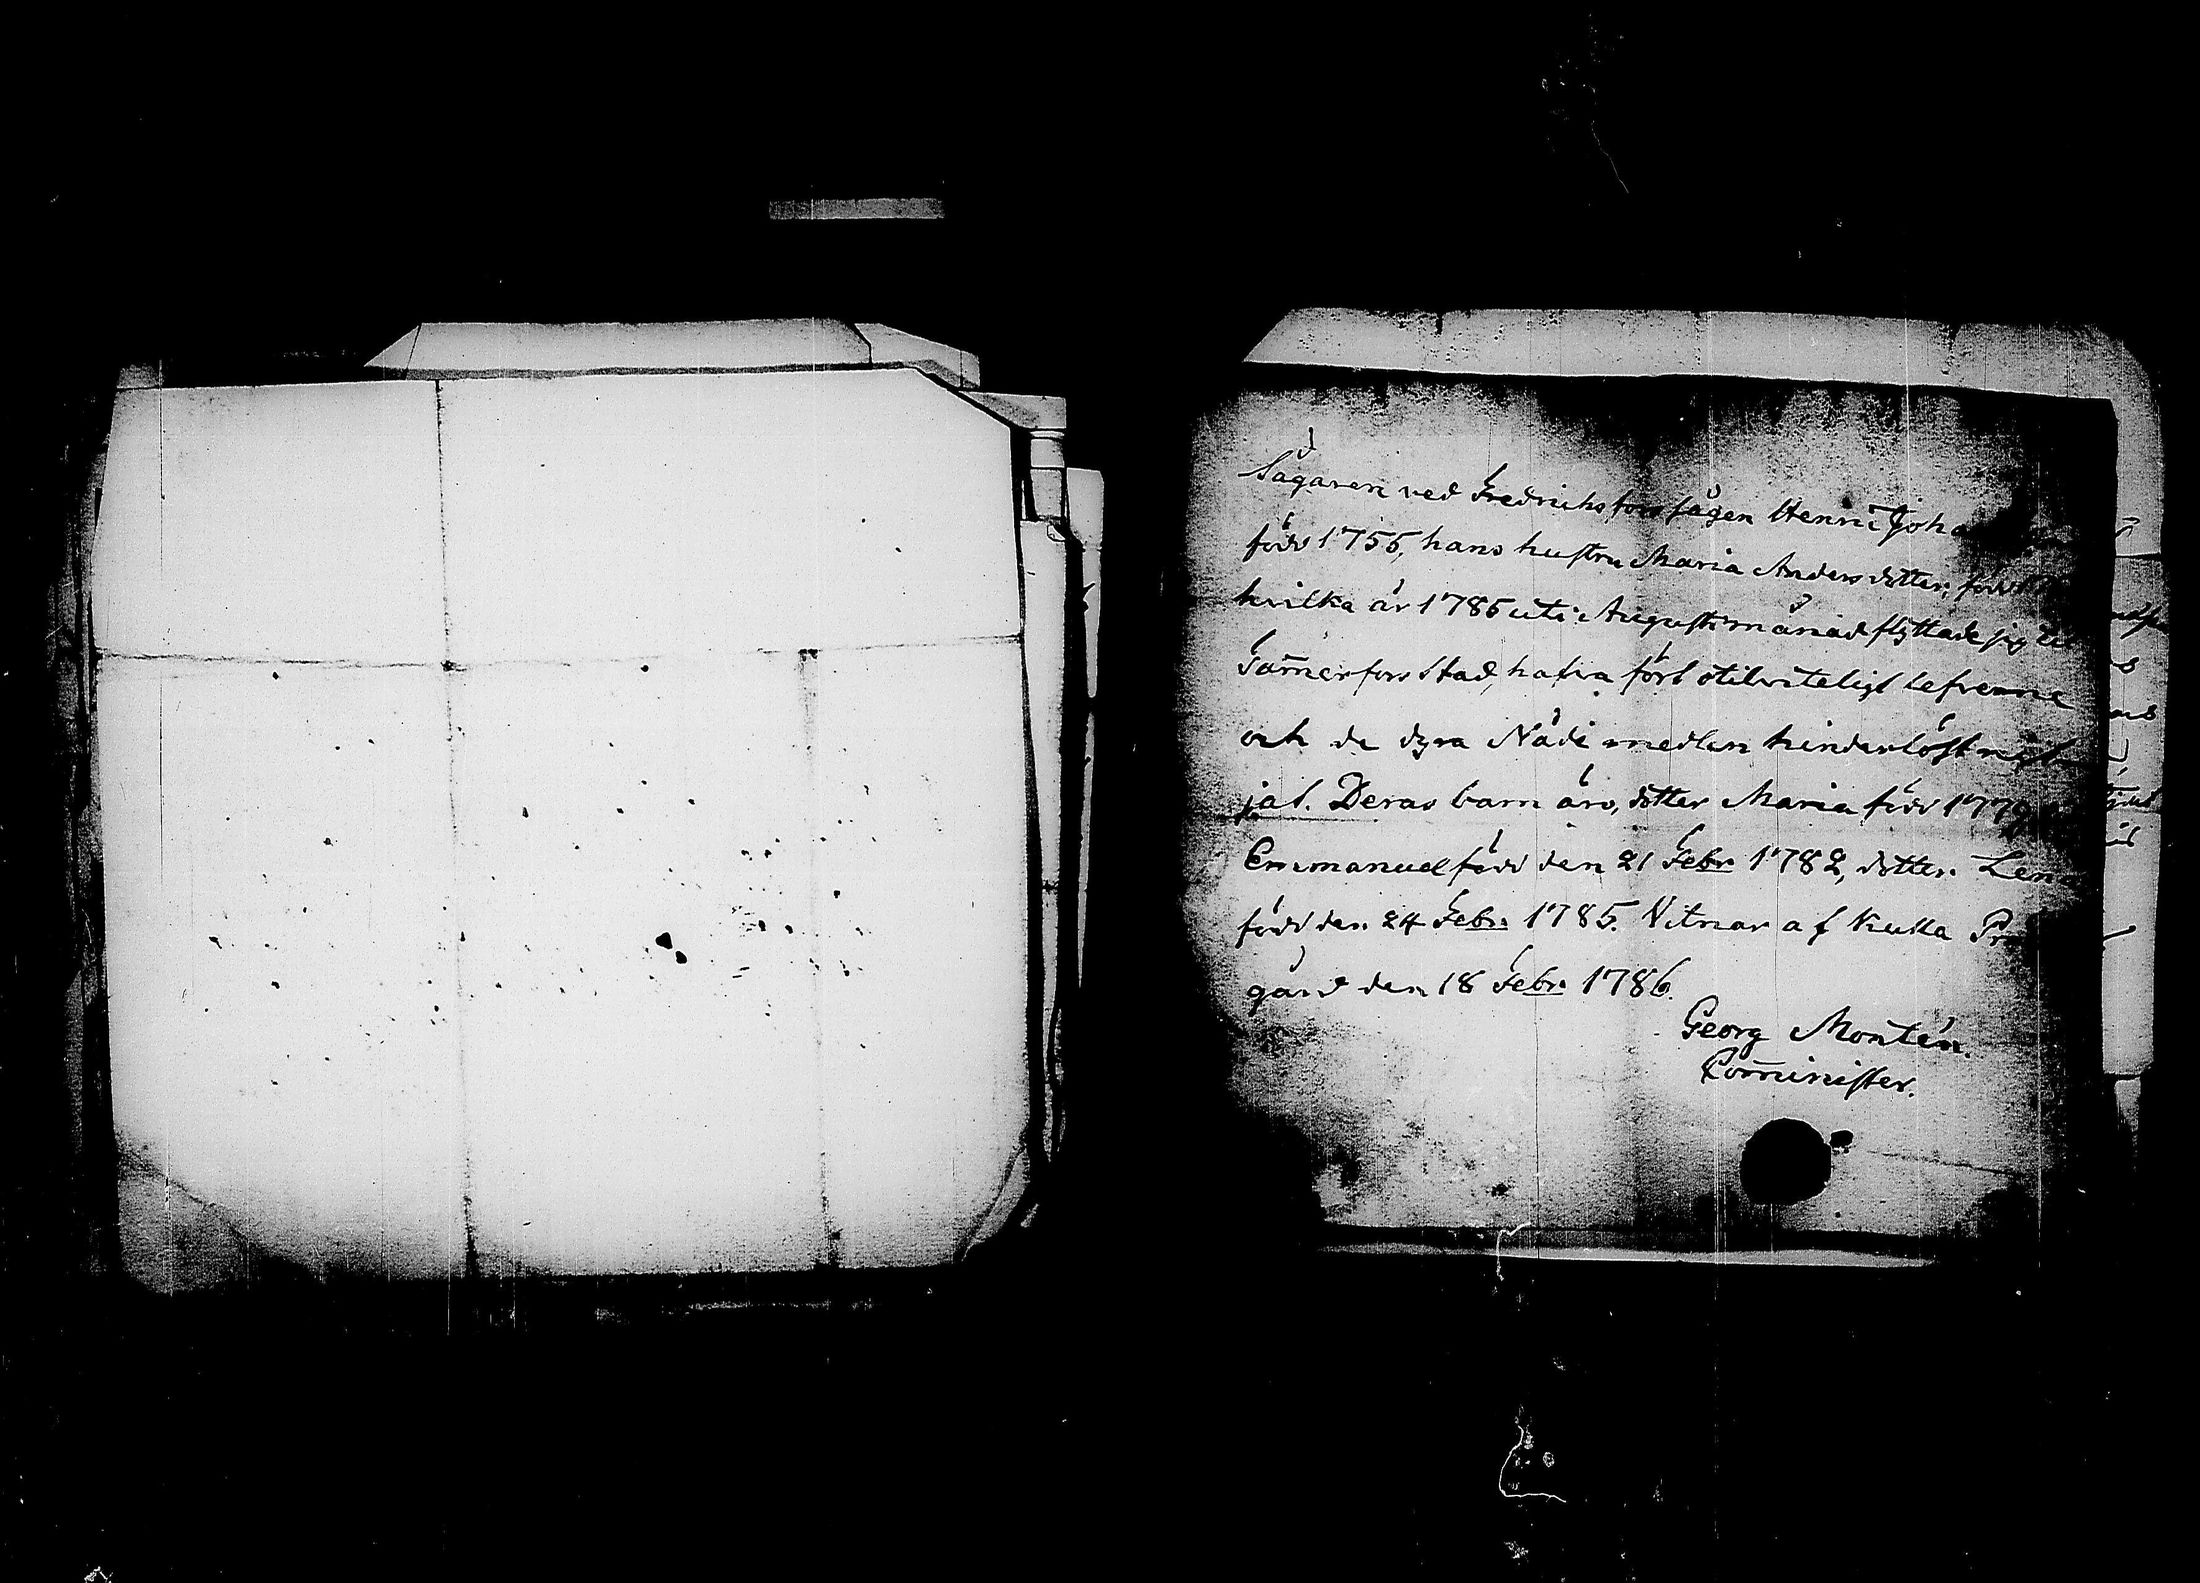 Sågaren ved Fredrichsfors sågen Henric Joha
född 1755, hans hustru Maria Andersdotter, född
hvilka år 1785 uti Augusti månad flyttade sig til
Tam̄erfors Stad, hafva fört otilviteligt lefverne
och de dyra Nåde medlen hinderlöst
jat. Deras barn äro, dotter Maria född 1779
Emmanuel född den 21 Febr. 1782, dotter Lena
född den 24 Febr. 1785. Vitnar af Kulla Pr
gård den 18 Febr. 1786.
Georg Montén.
Com̄inister.